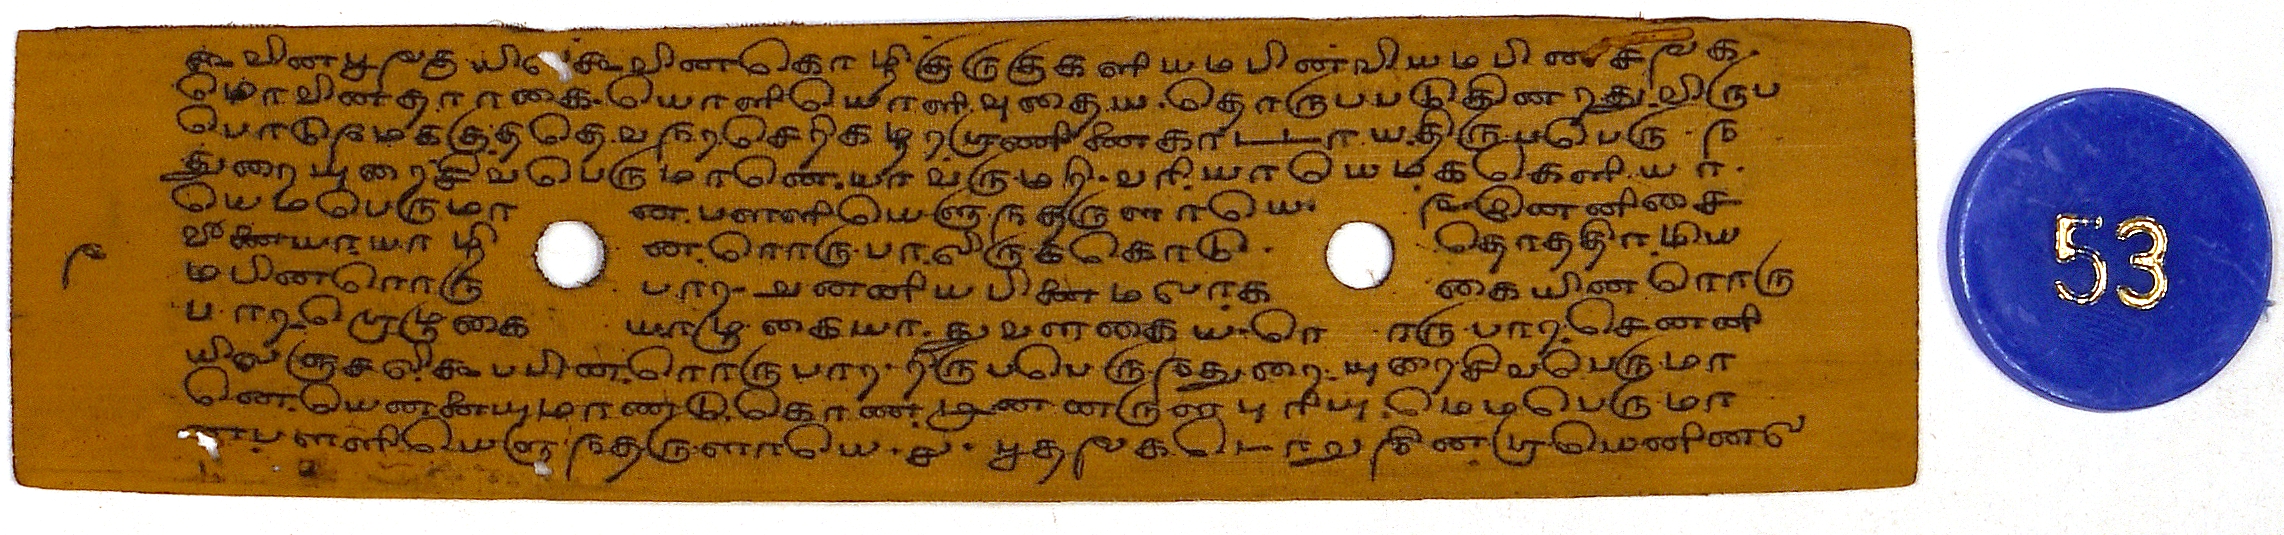 கூவினபூஙகுயிலகூவினகொழிகுருகுகளியமபினவியமபினசஙக
மொவினதாரகை யொளியொளியுதைய தொருபபடுகினறதுவிருப
பொடுமைக்குததெவநறசெறிகழறறாளிணைகாடடாயதிருபபெருந
துறையுறைசிவபெருமானெயாவருமறிவரியாயெமககெளியா
யெமபெருமா ன பளளியெழுநதருளாயெ ௩ இனனிசை
வீணையாயாழி னரொருபாலிருககொடு தொததிரமிய
மபினரொரு பாறறுனனியபிணைமலாக கையினரொரு
பாறறொழுகை யாழுகையாதுவளகையரொ ருபாறசெனனி
யிலஞசலிகூபபினரொருபாறறிருபபெருநதுறையுறைசிவபெருமா
னெயெனனையுமாணடுகொணடினனருளபுரியுமெமபெருமா
னபளளியெழுநதருளாயெ ௪ பூதஙகடொறுநினறாயெனினல
53